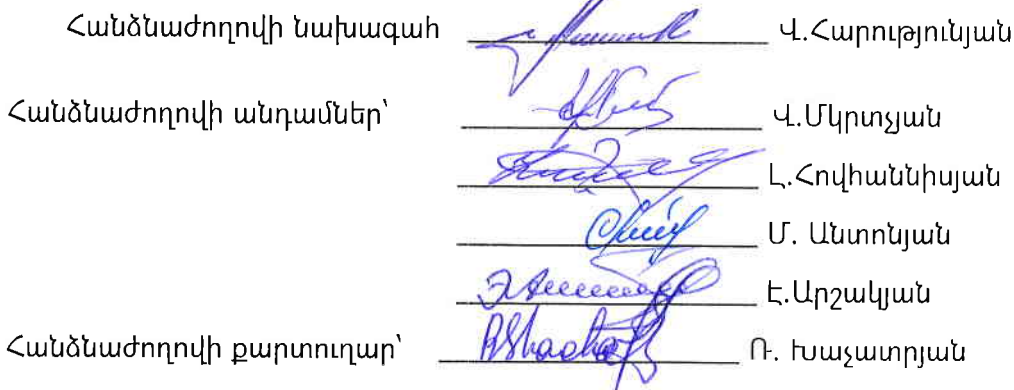 Հանձնաժողովի նախագահ Վ.Հարությունյան
Հանձնաժողովի անդամներ՝ Վ.Մկրտչյան
Լ.Հովհաննիսյան
Մ. Անտոնյան
Է.Արշակյան
Հանձնաժողովի քարտուղար՝ Ռ. Խաչատրյան